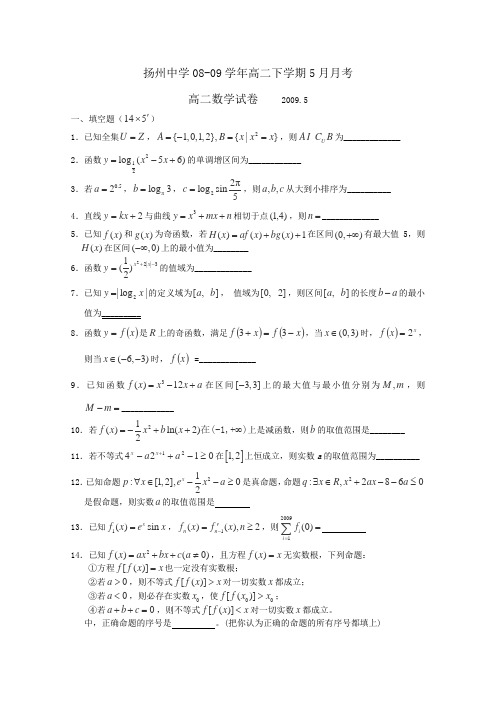 扬州中学08-09学年高二下学期5月月考
高二数学试卷 2009.5
一、填空题（14×5′）
1．已知全集U = Z，A = {−1,0,1,2}, B = {x | x² = x}，则 A I C_U B 为_____________
2．函数 y = log_{1/2}(x² − 5x + 6) 的单调增区间为____________
3．若 a = 2^{0.5}，b = log_π 3，c = log₂ sin 2π/5，则 a,b,c 从大到小排序为__________
4．直线 y = kx + 2 与曲线 y = x³ + mx + n 相切于点 (1,4)，则 n = _____________
5．已知 f(x) 和 g(x) 为奇函数，若 H(x) = af(x) + bg(x) + 1 在区间 (0,+∞) 有最大值 5，则
H(x) 在区间 (−∞,0) 上的最小值为________
6．函数 y = (1/2)^{x²+2|x|−3} 的值域为_____________
7．已知 y =| log₂ x | 的定义域为[a, b]， 值域为[0, 2]，则区间[a, b] 的长度 b − a 的最小
值为_________
8．函数 y = f(x) 是 R 上的奇函数，满足 f(3 + x) = f(3 − x)，当 x ∈ (0,3) 时，f(x) = 2^x，
则当 x ∈ (−6,−3) 时，f(x) =_____________
9．已知函数 f(x) = x³ − 12x + a 在区间 [−3,3] 上的最大值与最小值分别为 M, m，则
M − m = ____________
10．若 f(x) = −1/2 x² + b ln(x + 2)在(-1,+∞)上是减函数，则 b 的取值范围是________
11．若不等式 4^x − a2^{x+1} + a² − 1 ≥ 0 在 [1,2] 上恒成立，则实数 a 的取值范围为__________
12．已知命题 p : ∀x ∈ [1,2], e^x − 1/2 x² − a ≥ 0 是真命题，命题 q : ∃x ∈ R, x² + 2ax − 8 − 6a ≤ 0
是假命题，则实数 a 的取值范围是________
13．已知 f₁(x) = e^x sin x，f_n(x) = f′_{n−1}(x), n ≥ 2，则 ∑_{i=1}^{2009} f_i(0) = __________
14．已知 f(x) = ax² + bx + c(a ≠ 0)，且方程 f(x) = x 无实数根，下列命题：
①方程 f[f(x)] = x 也一定没有实数根；
②若 a > 0，则不等式 f[f(x)] > x 对一切实数 x 都成立；
③若 a < 0，则必存在实数 x₀，使 f[f(x₀)] > x₀；
④若 a + b + c = 0，则不等式 f[f(x)] < x 对一切实数 x 都成立。
中，正确命题的序号是________。(把你认为正确的命题的所有序号都填上)